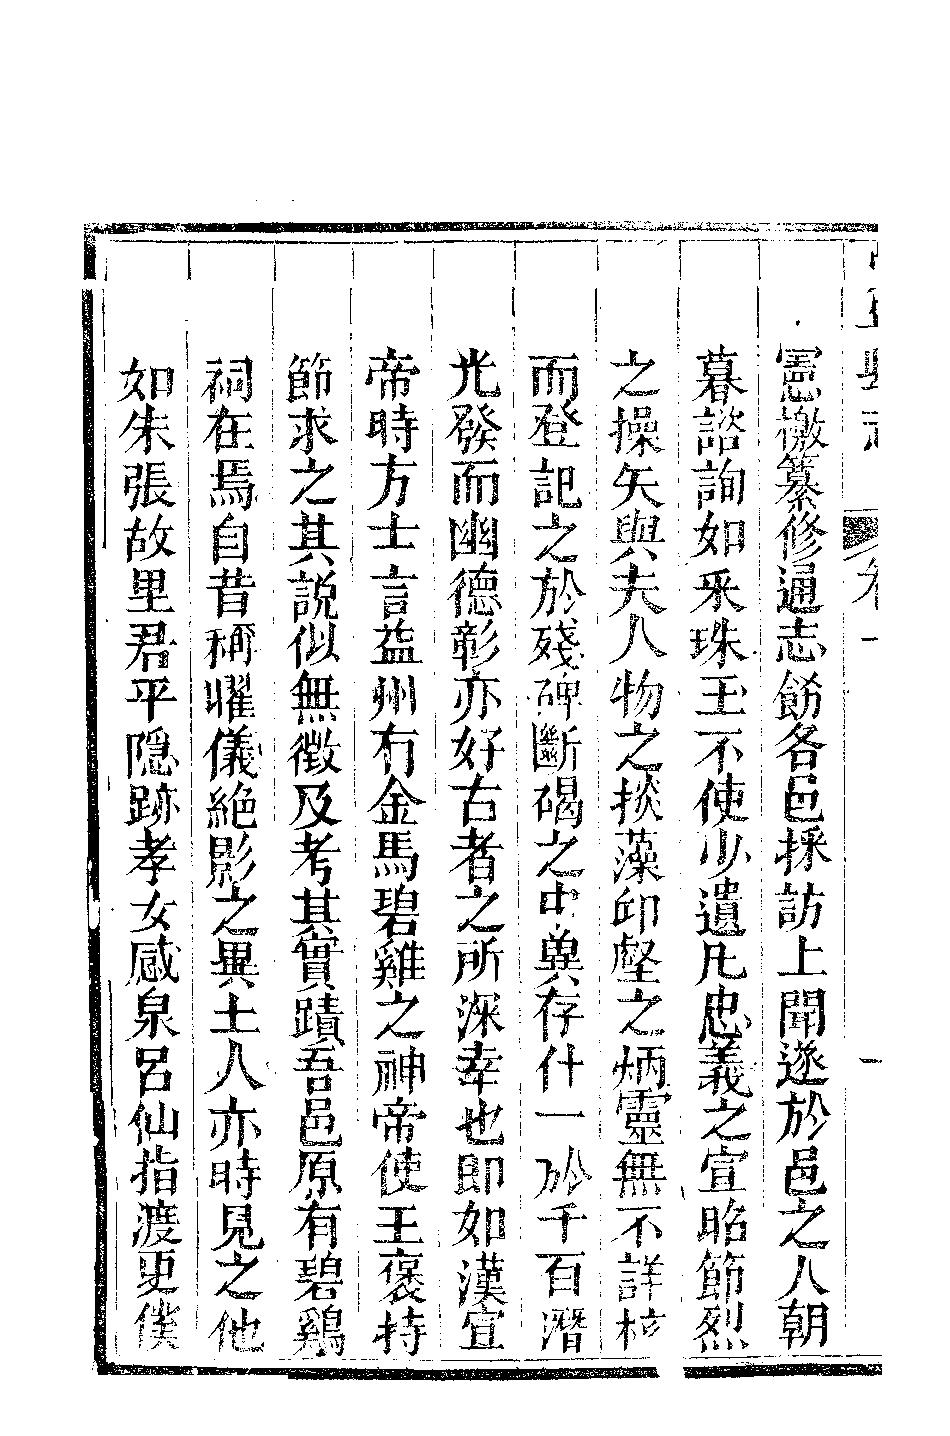 縣志 卷一 一
憲檄纂修通志飭各邑採訪上聞遂於邑之人朝
暮諮詢如采珠玉不使少遺凡忠義之宣昭節烈
之操矢與夫人物之掞藻印壑之炳靈無不詳核
而登記之於殘碑斷碣之中兾存什一於千百潛
光發而幽德彰亦好古者之所深幸也即如漢宣
帝時方士言益州有金馬碧雞之神帝使王褒持
節求之其説似無徵及考其實蹟吾邑原有碧鷄
祠在焉自昔稱曜儀絶影之異土人亦時見之他
如朱張故里君平隠跡孝女感泉呂仙指渡更僕